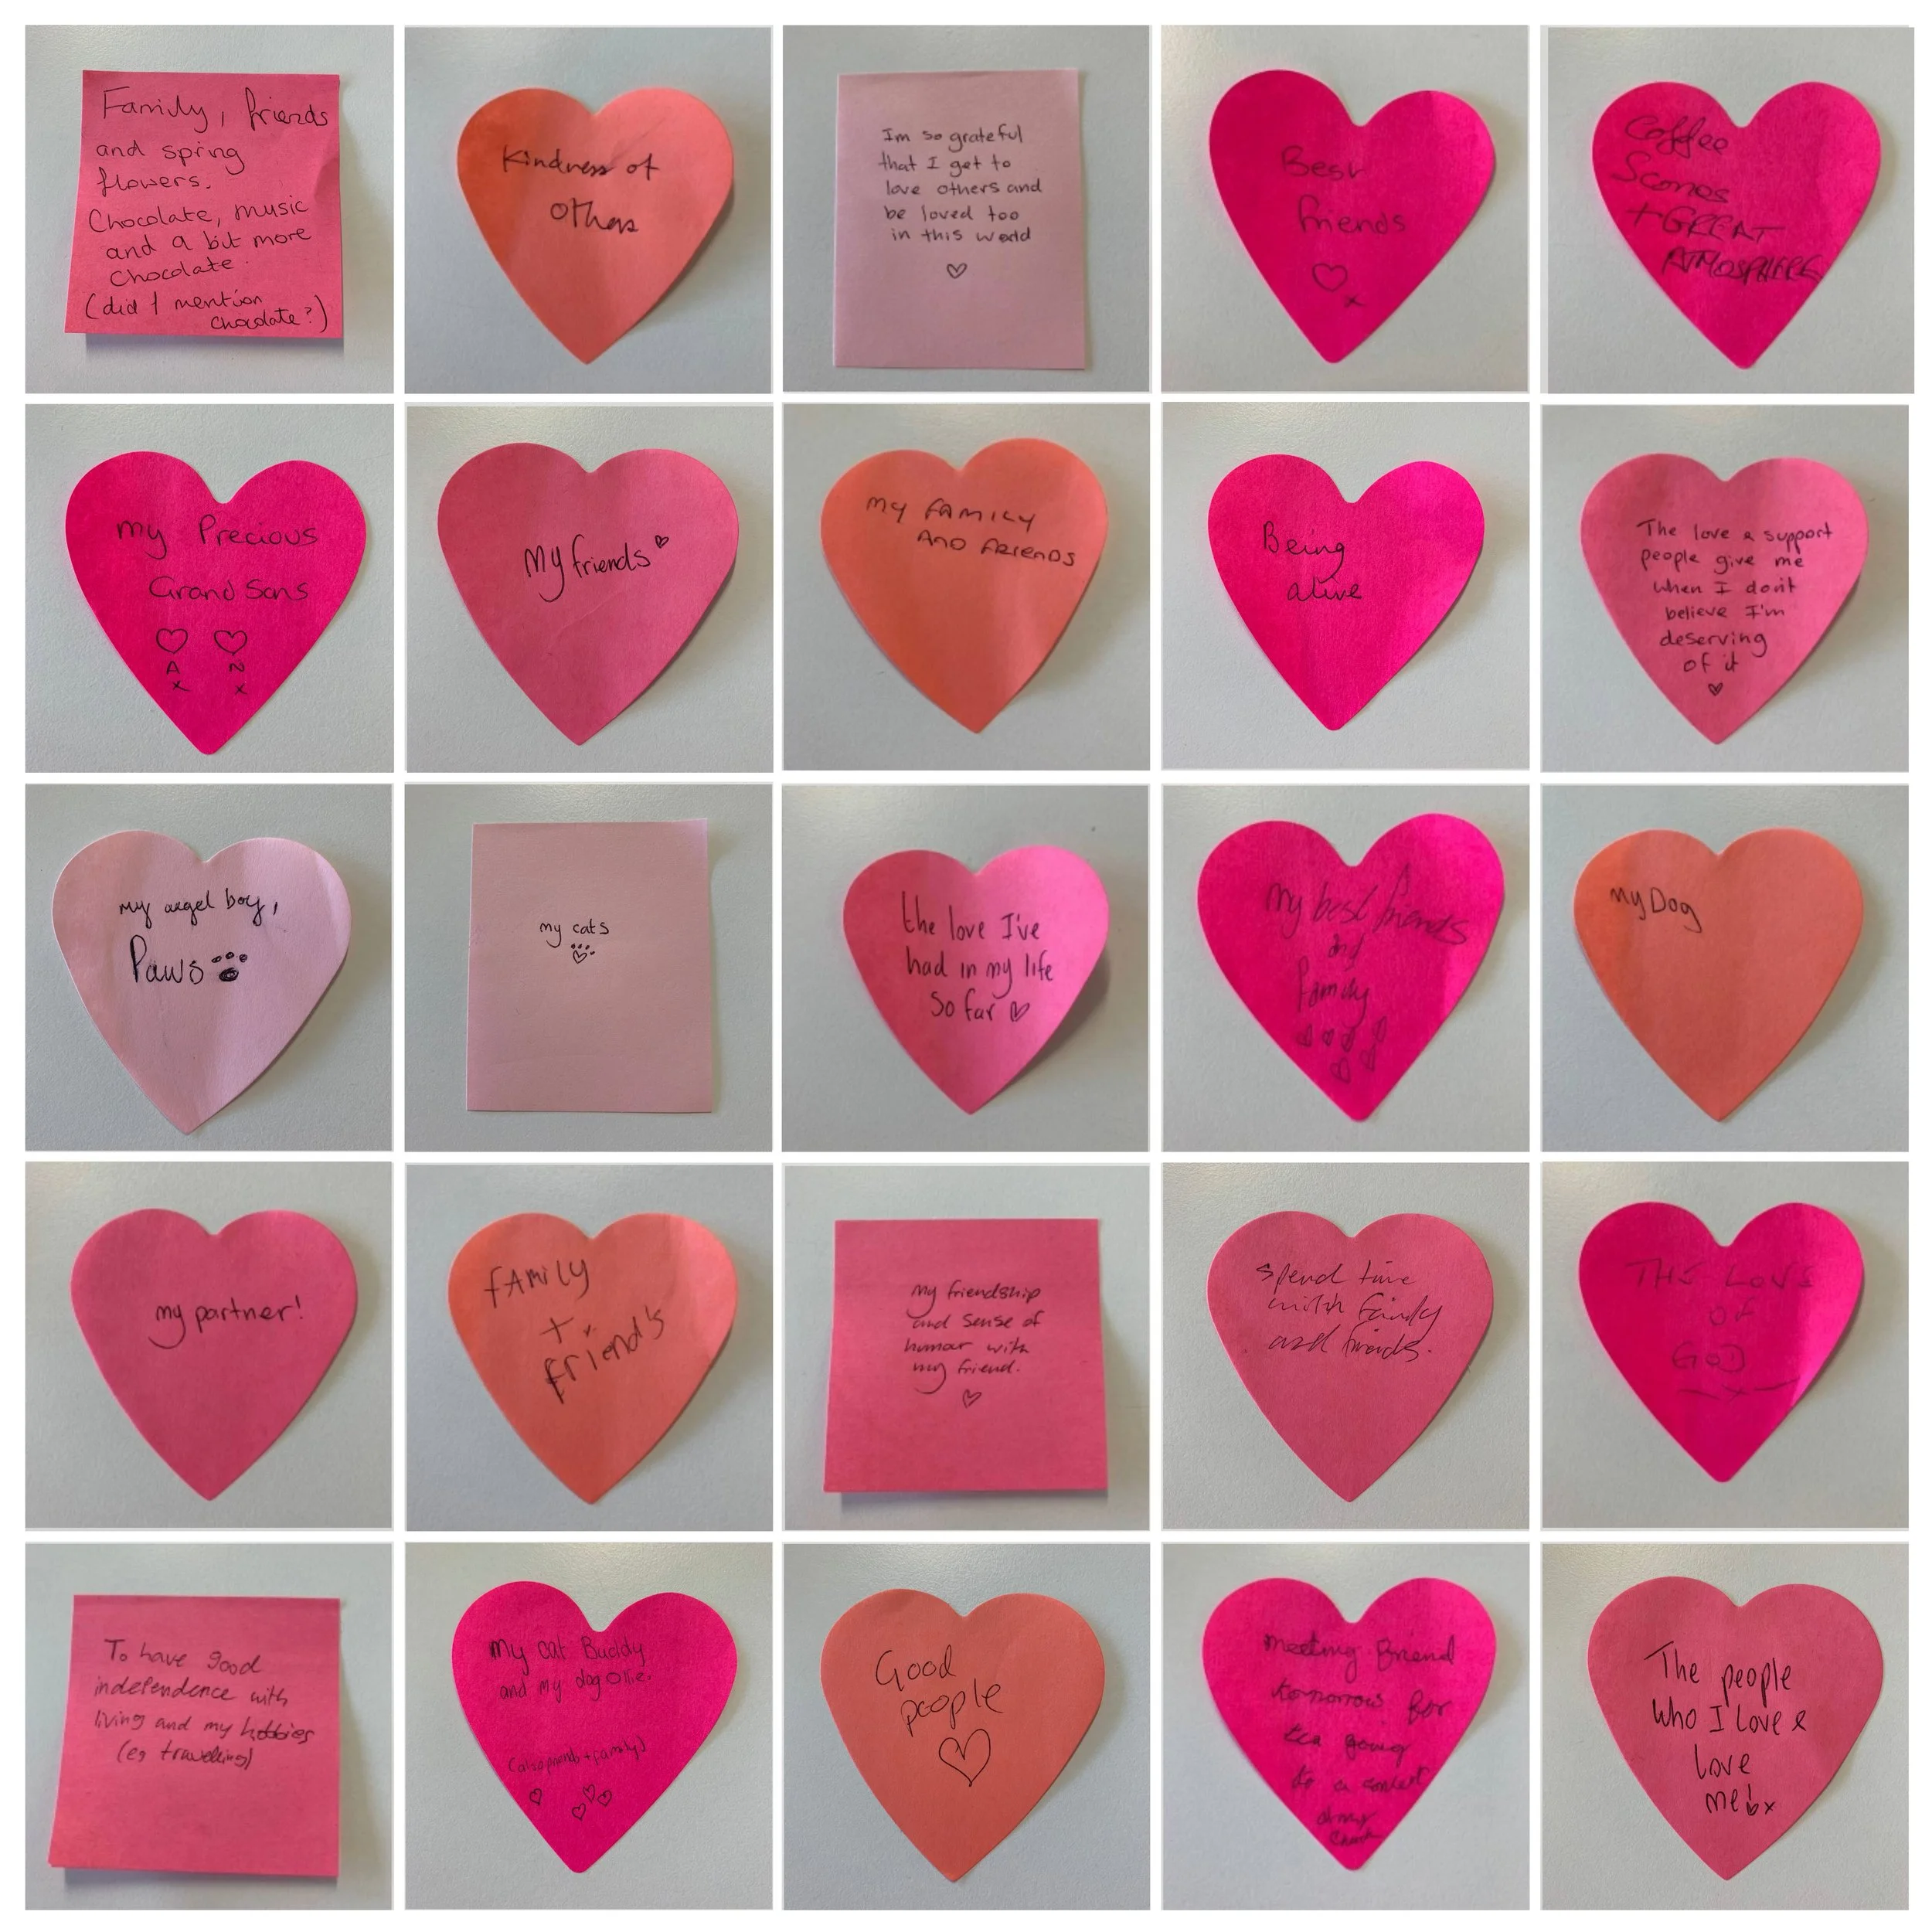 Family, friends
and spring
flowers.
Chocolate, music
and a bit more
chocolate.
(did I mention
chocolate?)
Kindness of
others
Im so grateful
that I get to
love others and
be loved too
in this world
Best
friends
x
Coffee
Scones
+ GREAT
ATMOSPHERE
my Precious
Grand Sons
A N
x x
My friends
MY FAMILY
AND FRIENDS
Being
alive
The love & support
people give me
when I don't
believe I'm
deserving
of it
my angel boy,
Paws
my cats
the love I've
had in my life
so far
my best friends
and
family
My Dog
my partner!
FAMILY
+
friend's
my friendship
and sense of
humour with
my friend.
Spend time
with family
and friends.
THE LOVE
OF
GOD
x
To have good
independence with
living and my hobbies
(eg travelling)
my cat Buddy
and my dog Ollie.
(also friends + family)
Good
people
meeting friend
tomorrow for
tea going
to a concert
at my
Church
The people
who I love &
love
me! x